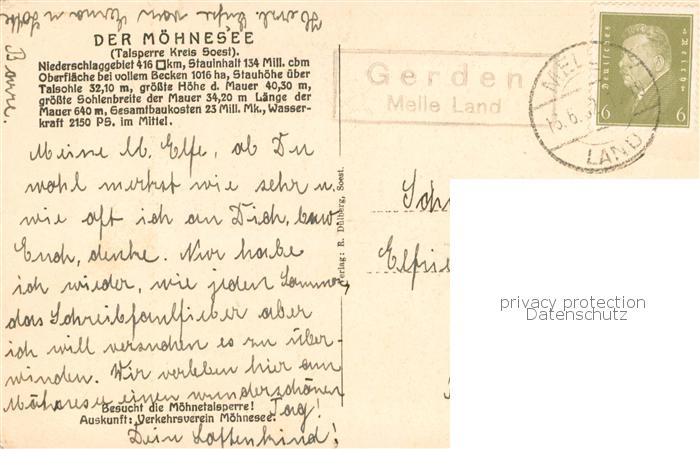 DER MÖHNESEE
(Talsperre Kreis Soest).
Niederschlaggebiet 416 □km, Stauinhalt 134 Mill. cbm
Oberfläche bei vollem Becken 1016 ha, Stauhöhe über
Talsohle 32,10 m, größte Höhe d. Mauer 40,30 m,
größte Sohlenbreite der Mauer 34,20 m Länge der
Mauer 640 m, Gesamtbaukosten 23 Mill. Mk., Wasser-
kraft 2150 PS. im Mittel.
Meine lb. Elfe, ob Du
wohl merkst wie sehr u.
wie oft ich an Dich, bzw
Euch, denke. Nur habe
ich wieder, wie jeden Sommer,
das Schreibfaulfieber aber
ich will versuchen es zu über-
winden. Wir verleben hier am
Möhnesee einen wunderschönen
Tag!
Besucht die Möhnetalsperre!
Auskunft: Verkehrsverein Möhnesee.
Dein
Verlag: R. Dülberg, Soest.
Gerden
Melle Land
MELLE
LAND
Deutsches Reich
6 6
privacy protection
Datenschutz